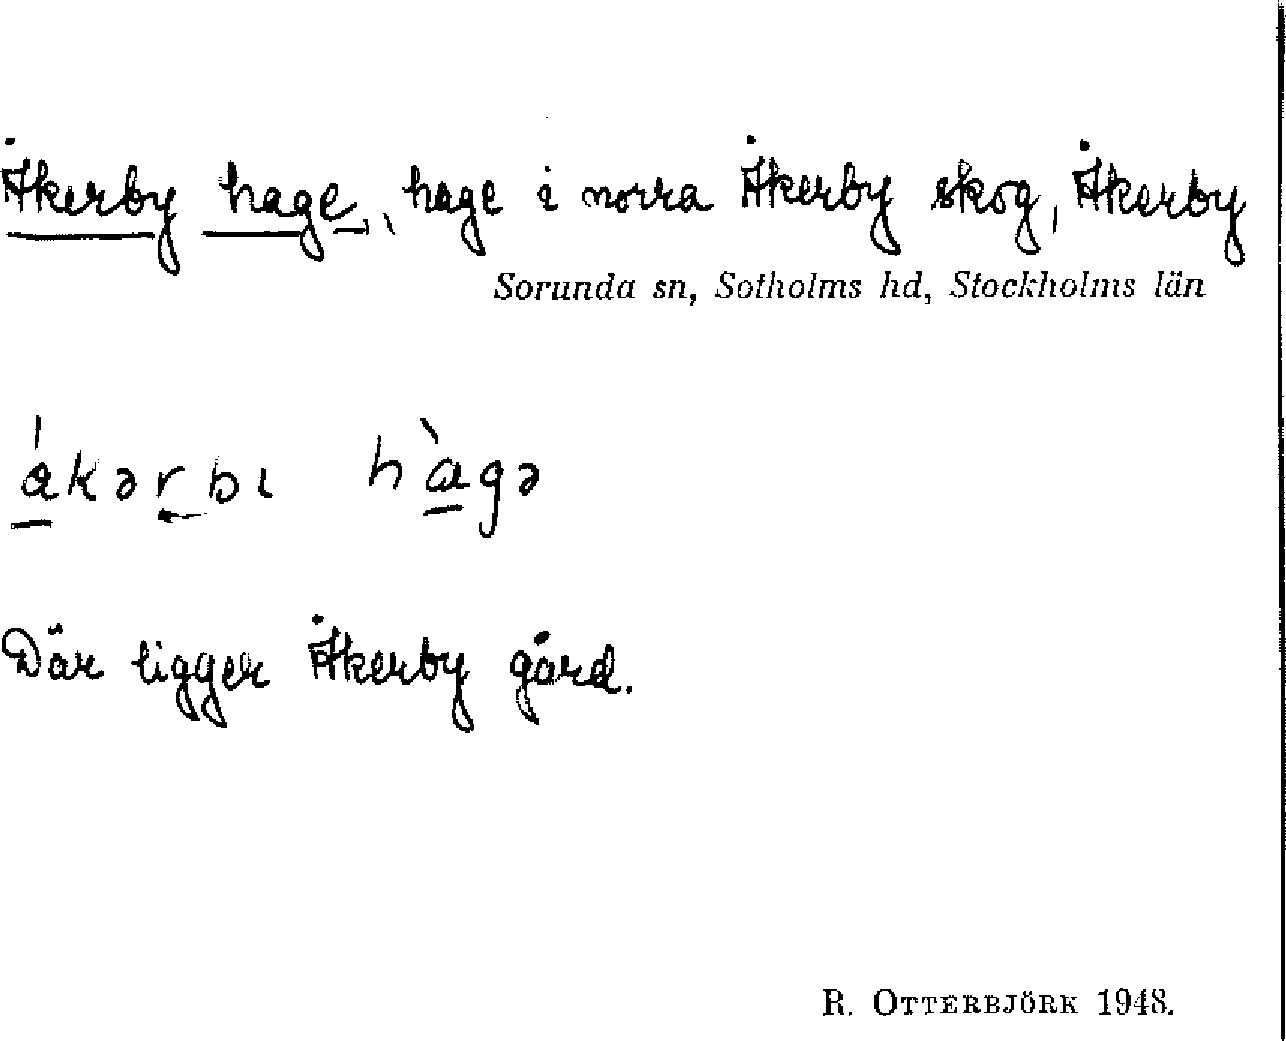 Åkerby hage, hage i norra Åkerby skog, Åkerby
Sorunda sn, Sotholms hd, Stockholms län
á̲kərbı hà̲gə
Där ligger Åkerby gård.
R. OTTERBJÖRK 1948.